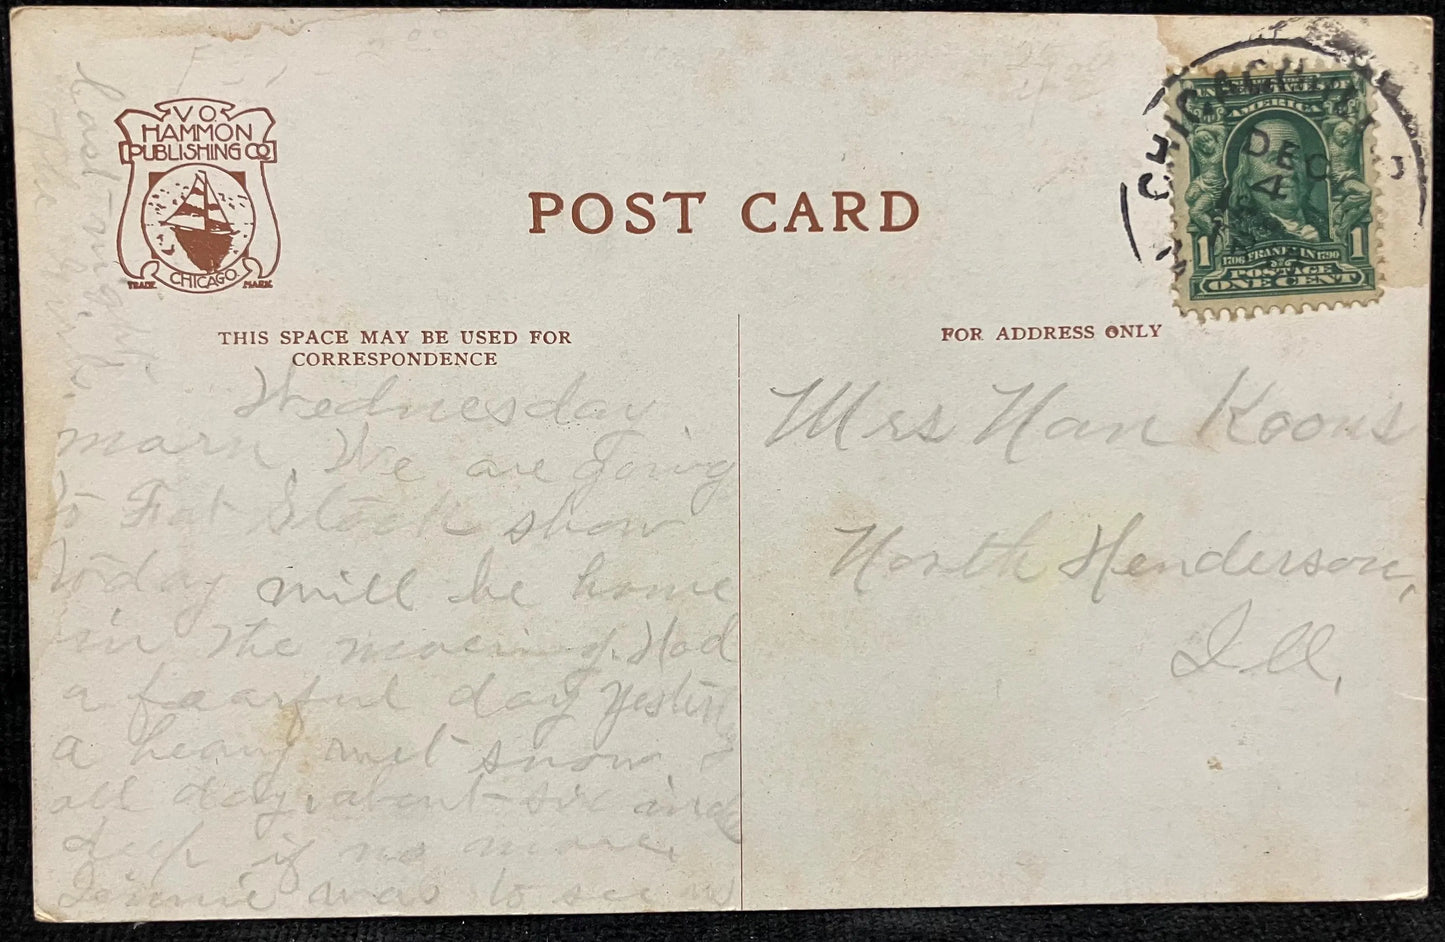 V.O.
HAMMON
PUBLISHING CO
CHICAGO
TRADE MARK
POST CARD
CHICAGO, ILL
DEC
4
UNITED STATES OF
AMERICA
1 1706 FRANKLIN 1790 1
POSTAGE
ONE CENT
THIS SPACE MAY BE USED FOR
CORRESPONDENCE
FOR ADDRESS ONLY
Wednesday
Mary, We are going
to Fat Stock show
today will be home
in the morning. Had
a fearful day yester
a heavy wet snow
all day, about six inch
deep if no more,
Jennie was to see us
last night
Mrs Nan Koons
North Henderson,
Ill,